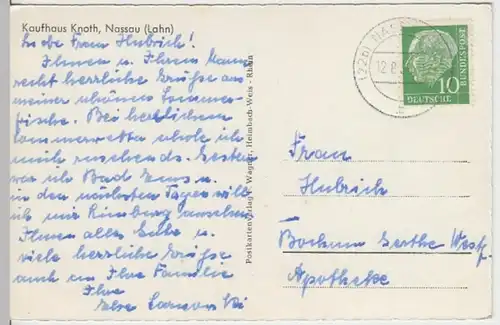 Kaufhaus Knoth, Nassau (Lahn)
Liebe Frau Hubrich!
Ihnen u. Ihrem Mann
recht herzliche Grüße aus
meiner schönen Sommer-
frische. Bei herrlichem
Sommerwetter erhole ich
mich zusehends. Gestern
war ich Bad Ems u.
in den nächsten Tagen will
ich mir ansehen
Ihnen alles Gute u.
viele herzliche Grüße
auch an Ihre Familie
Ihre
Else
Postkartenverlag F. Wagner, Heimbach-Weis - Rhein
(22b) NASS
12.8.
10
DEUTSCHE
BUNDESPOST
Frau
Hubrich
Bochum Gerthe Westf.
Apotheke